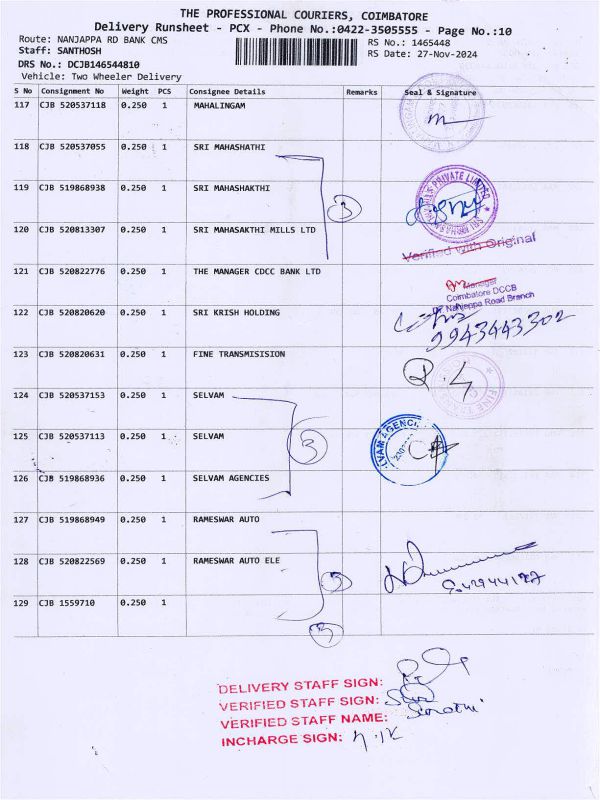 THE PROFESSIONAL COURIERS, COIMBATORE
Delivery Runsheet - PCX - Phone No.:0422-3505555 - Page No.:10
Route: NANJAPPA RD BANK CMS RS No.: 1465448
Staff: SANTHOSH RS Date: 27-Nov-2024
DRS No.: DCJB146544810
Vehicle: Two Wheeler Delivery
S No Consignment No Weight PCS Consignee Details Remarks Seal & Signature
117 CJB 520537118 0.250 1 MAHALINGAM
118 CJB 520537055 0.250 1 SRI MAHASHATHI
119 CJB 519868938 0.250 1 SRI MAHASHAKTHI
3
120 CJB 520813307 0.250 1 SRI MAHASAKTHI MILLS LTD
Verified with Original
121 CJB 520822776 0.250 1 THE MANAGER CDCC BANK LTD
Manager
Coimbatore DCCB
Nanjappa Road Branch
122 CJB 520820620 0.250 1 SRI KRISH HOLDING
9943443302
123 CJB 520820631 0.250 1 FINE TRANSMISISION
124 CJB 520537153 0.250 1 SELVAM
125 CJB 520537113 0.250 1 SELVAM
3
126 CJB 519868936 0.250 1 SELVAM AGENCIES
127 CJB 519868949 0.250 1 RAMESWAR AUTO
128 CJB 520822569 0.250 1 RAMESWAR AUTO ELE
129 CJB 1559710 0.250 1
DELIVERY STAFF SIGN:
VERIFIED STAFF SIGN:
VERIFIED STAFF NAME:
INCHARGE SIGN: